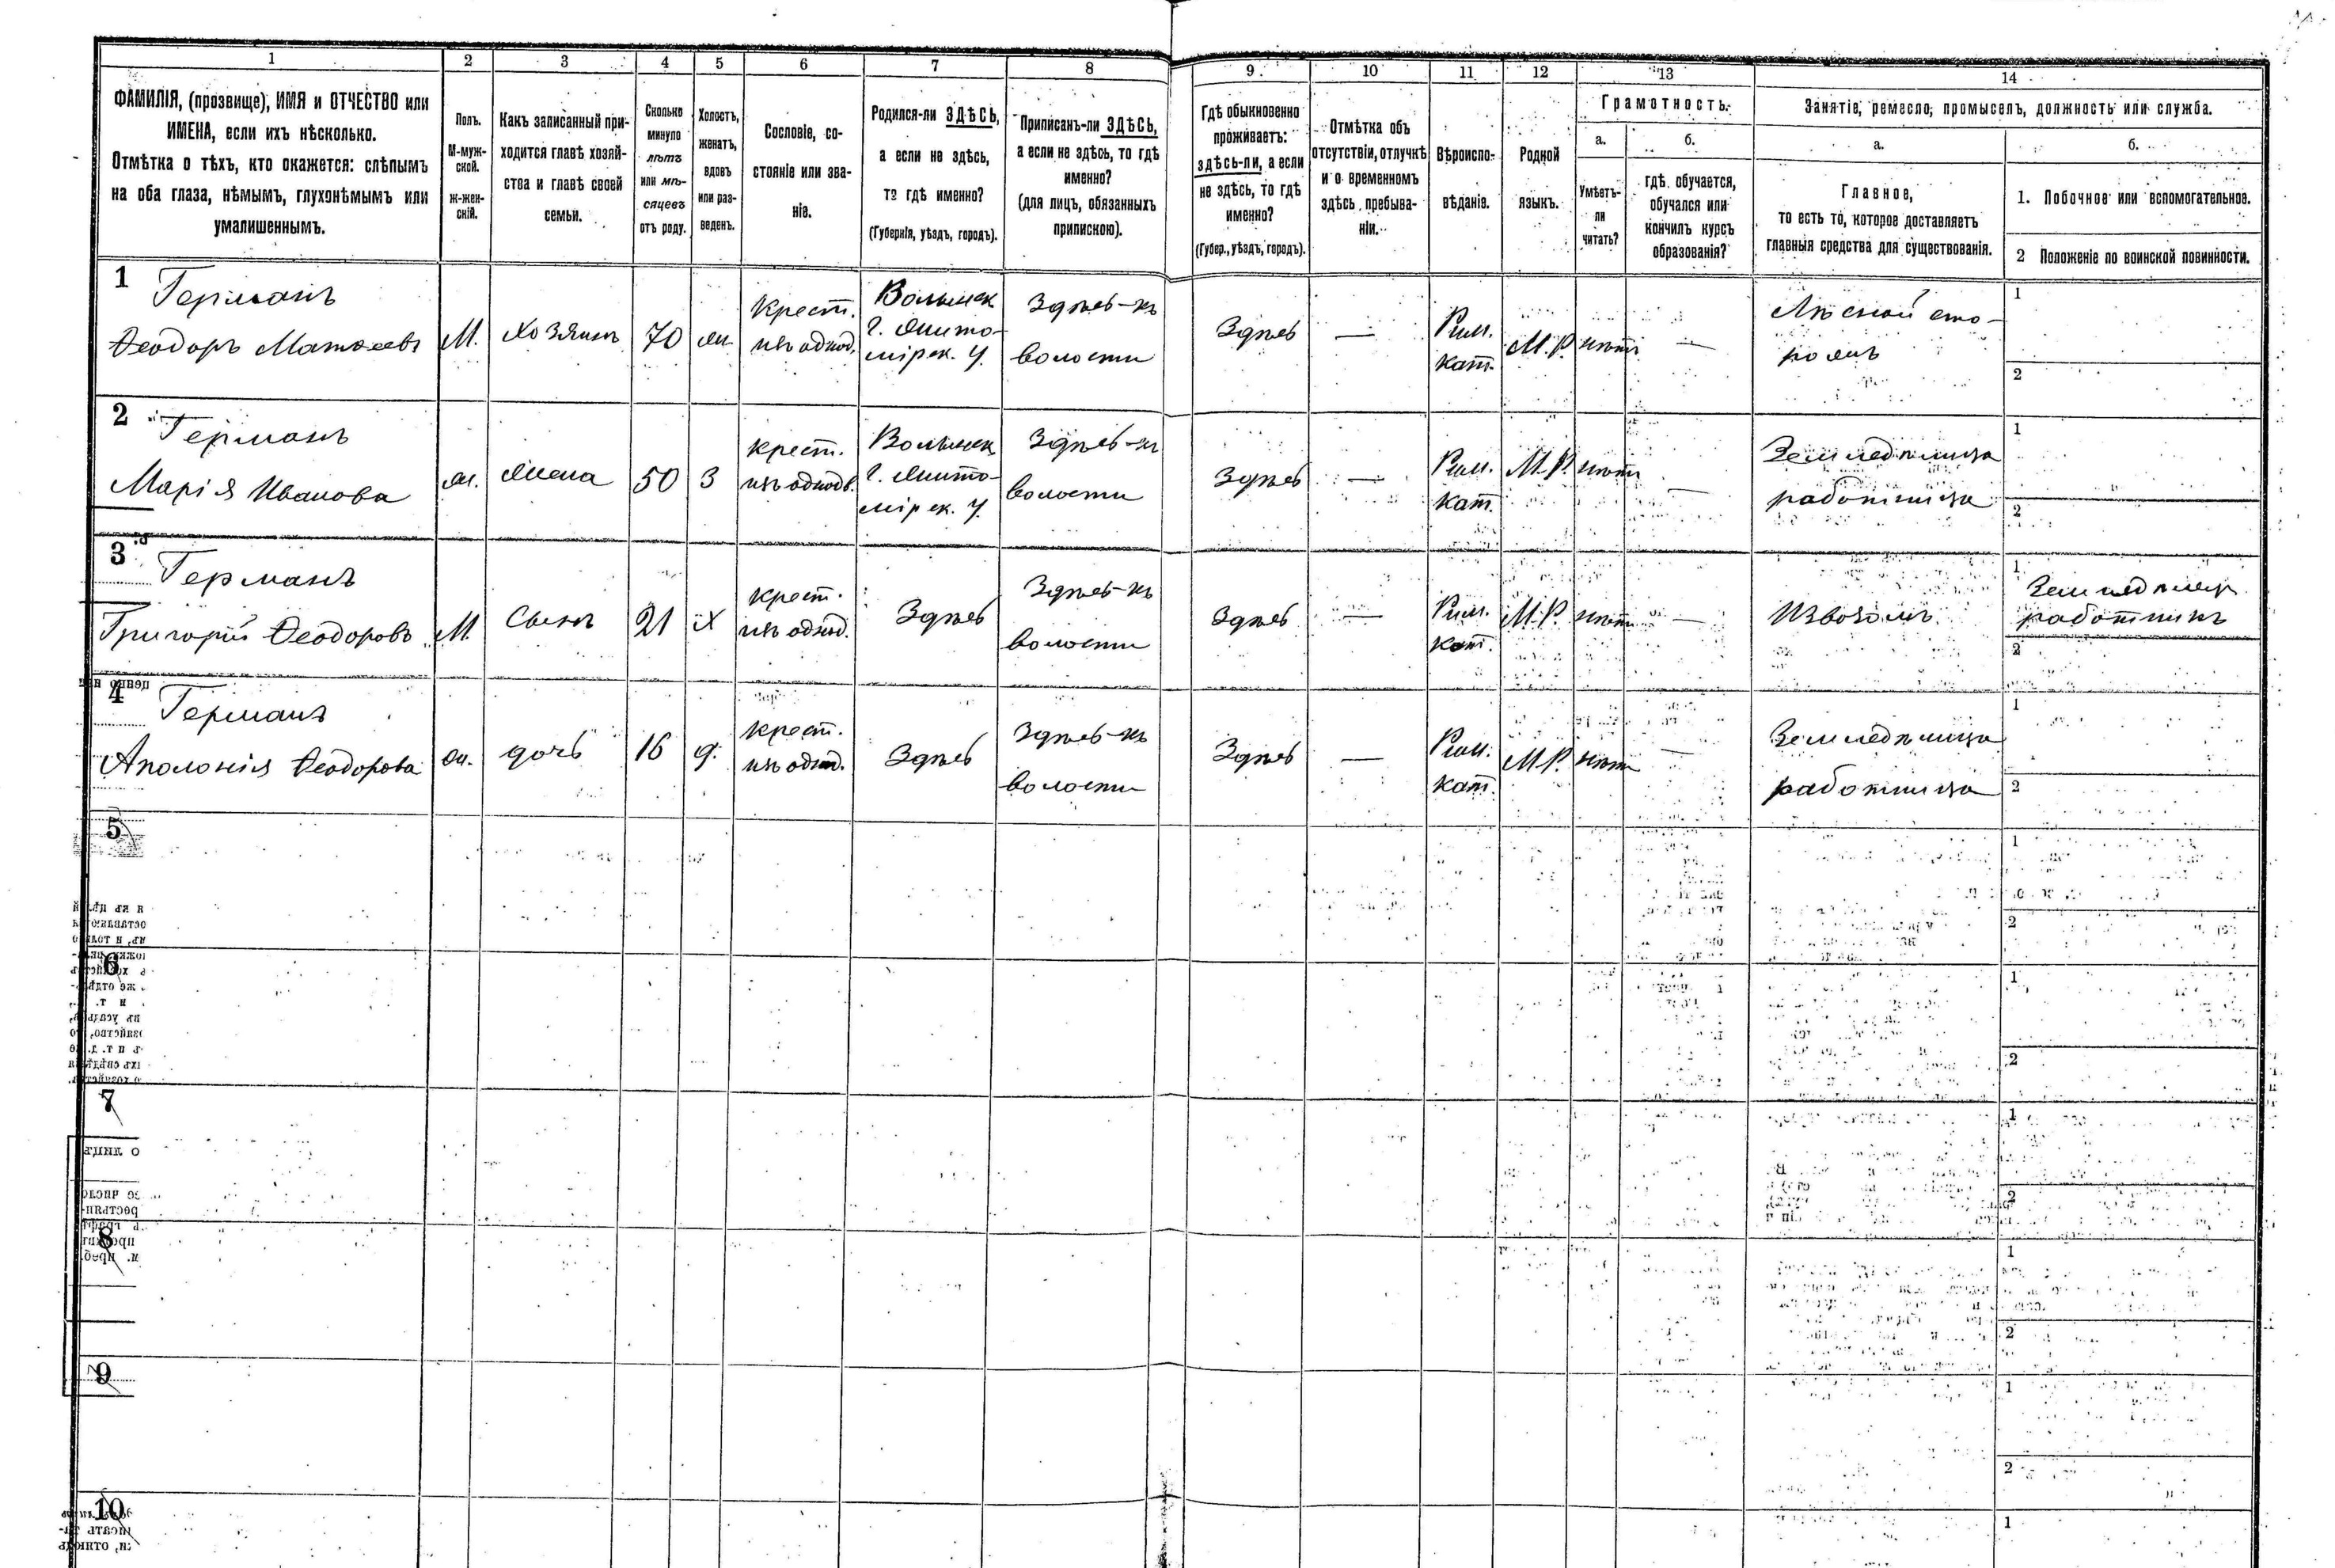 1
2
3
4
5
6
7
8
9
10
11
12
13
14
ФАМИЛІЯ, (прозвище), ИМЯ и ОТЧЕСТВО или
ИМЕНА, если ихъ нѣсколько.
Отмѣтка о тѣхъ, кто окажется: слѣпымъ
на оба глаза, нѣмымъ, глухонѣмымъ или
умалишеннымъ.
Полъ.
М-муж-
ской.
Ж-жен-
скій.
Какъ записанный при-
ходится главѣ хозяй-
ства и главѣ своей
семьи.
Сколько
минуло
лѣтъ
или мѣ-
сяцевъ
отъ роду.
Холостъ,
женатъ,
вдовъ
или раз-
веденъ.
Сословіе, со-
стояніе или зва-
ніе.
Родился-ли ЗДѢСЬ,
а если не здѣсь,
то гдѣ именно?
(Губернія, уѣздъ, городъ).
Приписанъ-ли ЗДѢСЬ,
а если не здѣсь, то гдѣ
именно?
(для лицъ, обязанныхъ
припискою).
Гдѣ обыкновенно
проживаетъ:
здѣсь-ли, а если
не здѣсь, то гдѣ
именно?
(Губер., уѣздъ, городъ).
Отмѣтка объ
отсутствіи, отлучкѣ
и о временномъ
здѣсь пребыва-
ніи.
Вѣроиспо-
вѣданіе.
Родной
языкъ.
Грамотность.
а.
Умѣетъ-
ли
читать?
б.
гдѣ обучается,
обучался или
кончилъ курсъ
образованія?
Занятіе, ремесло, промыселъ, должность или служба.
а.
Главное,
то есть то, которое доставляетъ
главныя средства для существованія.
б.
1. Побочное или вспомогательное.
2 Положеніе по воинской повинности.
1
Германъ
Ѳеодоръ Матвеевъ
М.
Хозяинъ
70
ж.
Крест.
изъ однод.
Волынск
г. Жито-
мірск. у.
Здѣсь-къ
волости
Здѣсь
—
Рим.
кат.
М.Р.
нѣтъ
—
Лѣсной сто-
рожъ
1
2
2
Германъ
Марія Иванова
ж.
Жена
50
З
крест.
изъ однодв.
Волынск
г. Жито-
мірск. у.
Здѣсь-къ
волости
Здѣсь
—
Рим.
кат.
М.Р.
нѣтъ
—
Земледѣлица
работница
1
2
3
Германъ
Григорій Ѳеодоровъ
М.
Сынъ
21
Х
крест.
изъ однод.
Здѣсь
Здѣсь-къ
волости
Здѣсь
—
Рим.
кат.
М.Р.
нѣтъ
—
Извозомъ
1
Земледѣлец
работникъ
2
4
Германъ
Аполонія Ѳеодорова
ж.
дочь
16
д.
крест.
изъ однод.
Здѣсь
Здѣсь-къ
волости
Здѣсь
—
Рим.
кат.
М.Р.
нѣтъ
—
Земледѣлица
работница
1
2
5
1
2
6
1
2
7
1
2
8
1
2
9
1
2
10
1